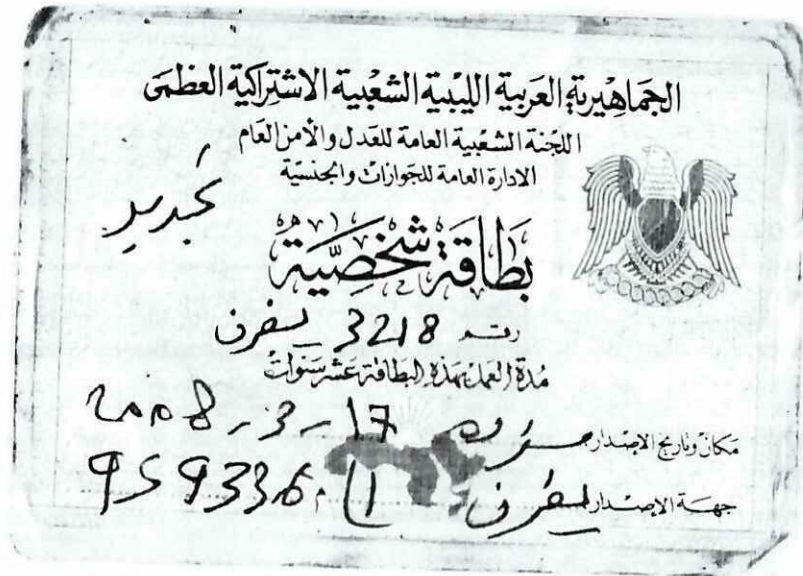 الجماهيرية العربية الليبية الشعبية الاشتراكية العظمى
اللجنة الشعبية العامة للعدل والأمن العام
الادارة العامة للجوازات والجنسية
تجديد
بطاقة شخصية
رقم 3218 يفرن
مدة العمل بهذه البطاقة عشر سنوات
مكان وتاريخ الاصدار 17-3-2008
جهة الاصدار يفرن